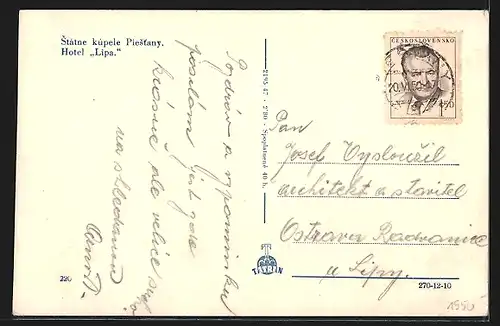 Štátne kúpele Piešťany.
Hotel „Lipa."
Pozdrav a vzpomínku
posílám jest zde
krásně ale velice
na shledanou
220
2195/47 - 2700 - Spoplatnené 40 h.
TATRAN
ČESKOSLOVENSKO
Pan
Josef Vysloužil
architekt a stavitel
Ostrava Radvanice
u Lípy.
270-12-10
1950